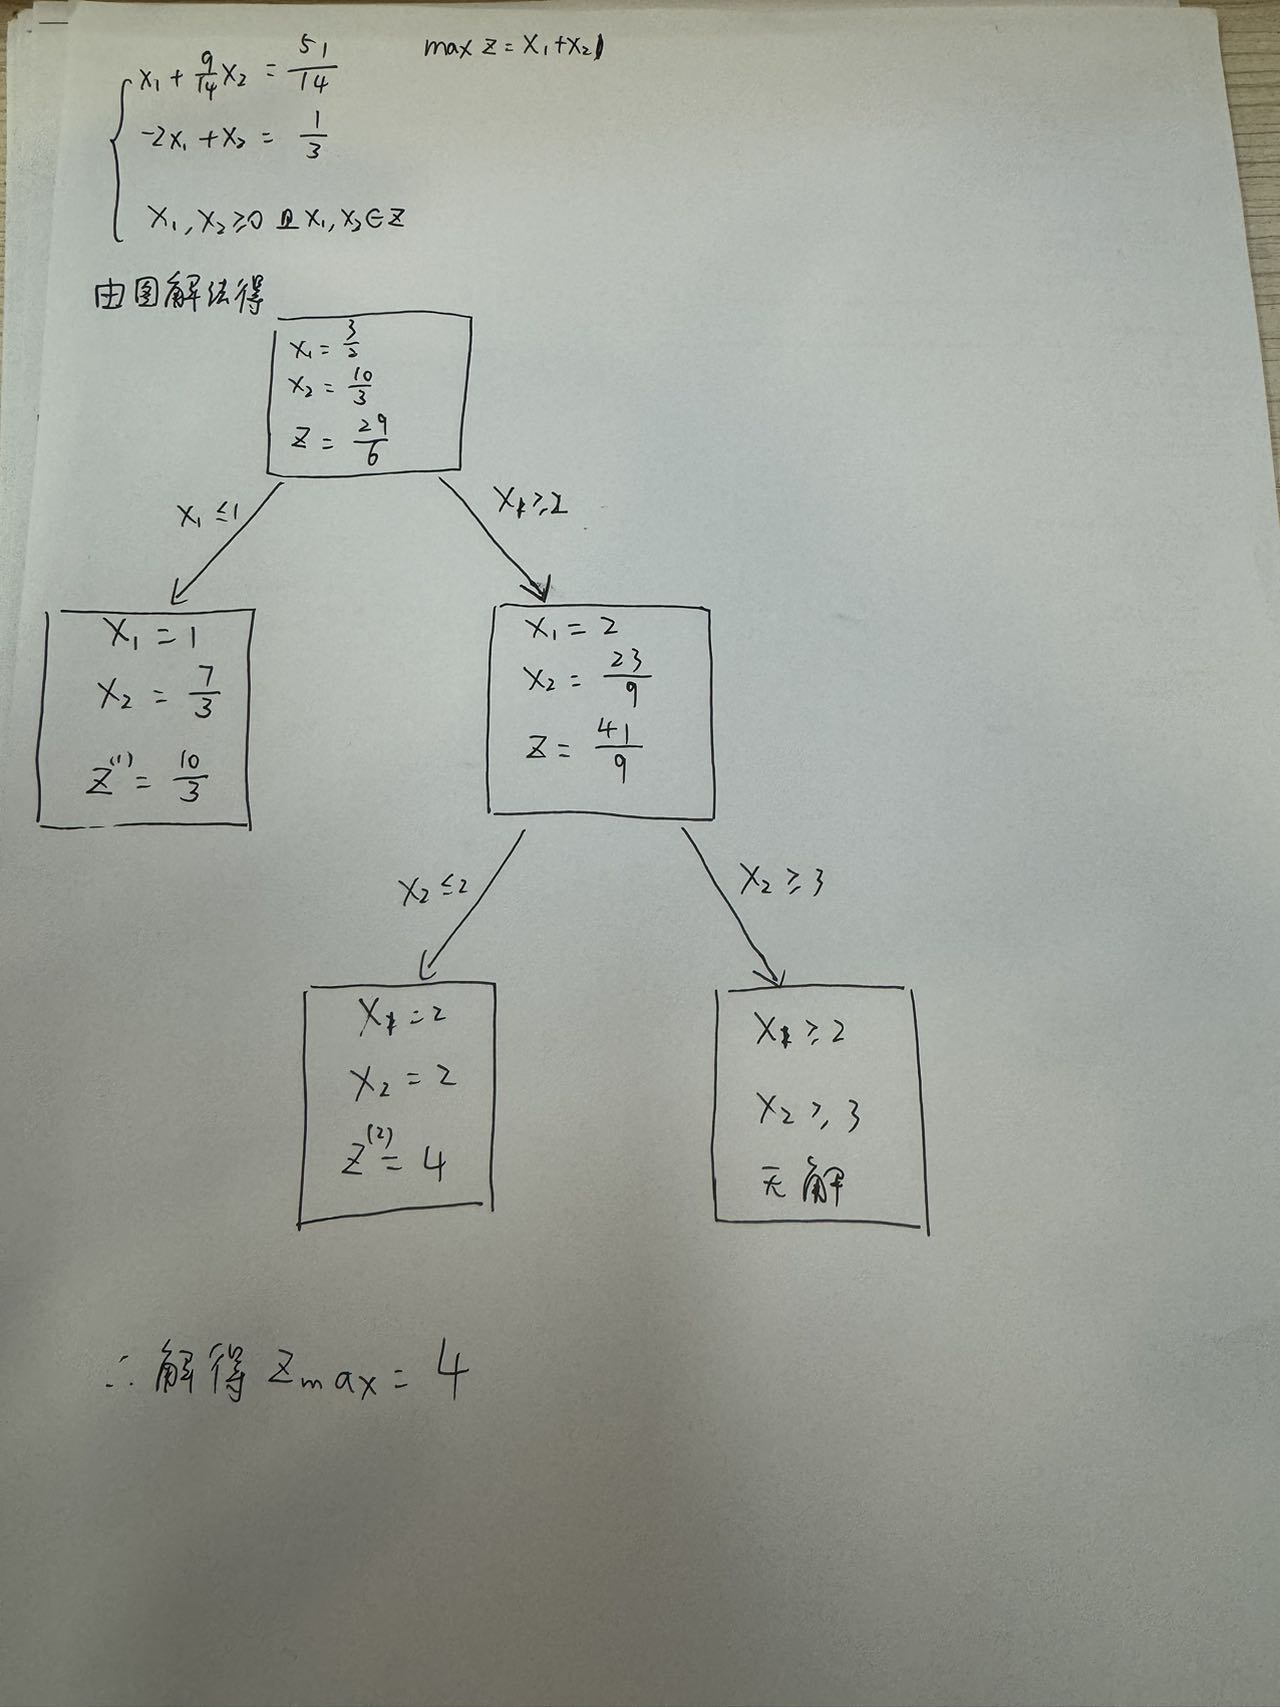 max z = x₁+x₂
x₁ + 9/14 x₂ = 51/14
-2x₁ + x₂ = 1/3
x₁, x₂ ≥ 0 且 x₁, x₂ ∈ Z
由图解法得
x₁ = 3/2
x₂ = 10/3
Z = 29/6
x₁ ≤ 1
x₁ ≥ 2
x₁ = 1
x₂ = 7/3
Z⁽¹⁾ = 10/3
x₁ = 2
x₂ = 23/9
Z = 41/9
x₂ ≤ 2
x₂ ≥ 3
x₁ = 2
x₂ = 2
Z⁽²⁾ = 4
x₁ ≥ 2
x₂ ≥ 3
无解
∴ 解得 Zmax = 4